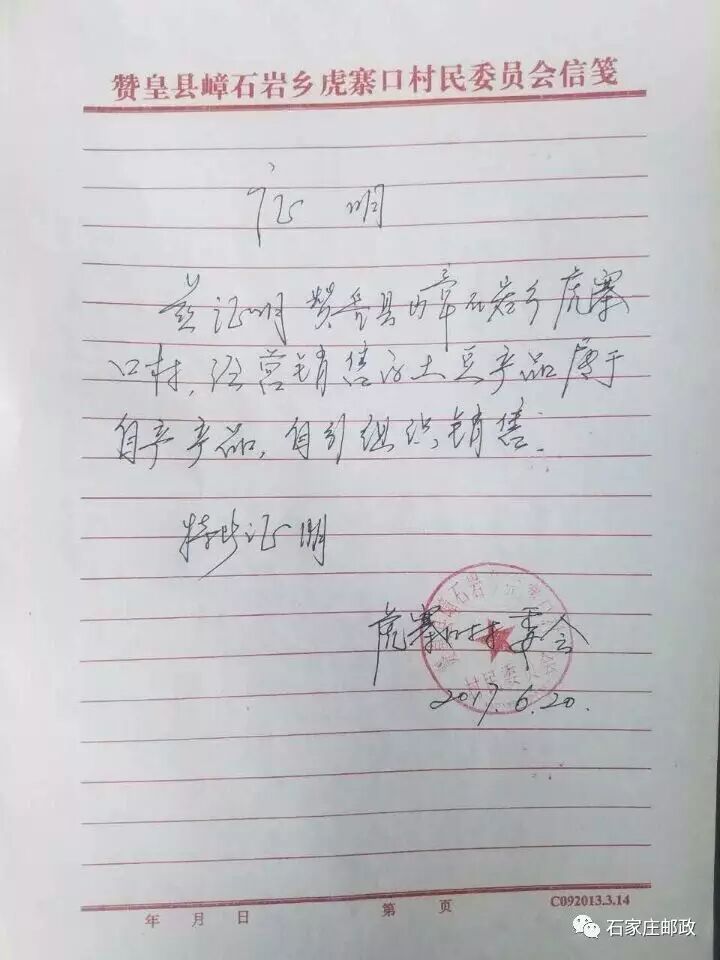 赞皇县嶂石岩乡虎寨口村民委员会信笺
证 明
兹证明赞皇县嶂石岩乡虎寨
口村,经营销售的土豆产品属于
自产产品,自行组织销售.
特此证明
虎寨口村村委会
村民委员会
2017.6.20.
年 月 日 第 页 C092013.3.14
石家庄邮政